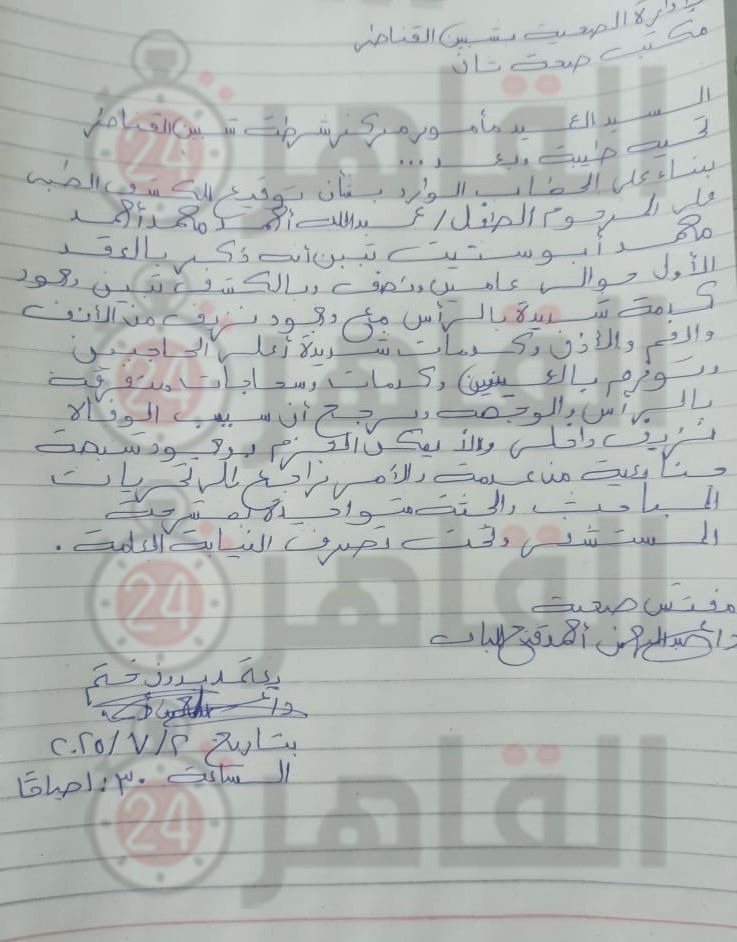 الإدارة الصحية بشبين القناطر
مكتب صحة ثان
السيد العميد مأمور مركز شرطة شبين القناطر
تحية طيبة وبعد ...
بناء على الخطاب الوارد بشأن توقيع الكشف الطبي
على المرحوم الطفل / عبدالله أحمد محمد أحمد
محمد أبوستيت تبين أنه ذكر بالعقد
الأول حوالى عامين ونصف وبالكشف تبين وجود
كدمة شديدة بالرأس مع وجود نزيف من الأنف
والفم والأذن وكدمات شديدة أعلى الحاجبين
وتورم بالعينين وكدمات وسحاجات متفرقة
بالرأس والوجه ويرجح أن سبب الوفاة
نزيف داخلى ولا يمكن الجزم بوجود شبهة
جنائية من عدمة والأمر راجع إلى تحريات
المباحث والجثة متواجدة بمشرحة
المستشفى وتحت تصرف النيابة العامة .
مفتش صحة
د/ عبدالرحمن أحمد
يعتمد بدون ختم
بتاريخ ٢٠٢٥/٧/٢
الساعة ١:٣٠ صباحًا
القاهرة 24
القاهرة 24
القاهرة 24
القاهرة 24